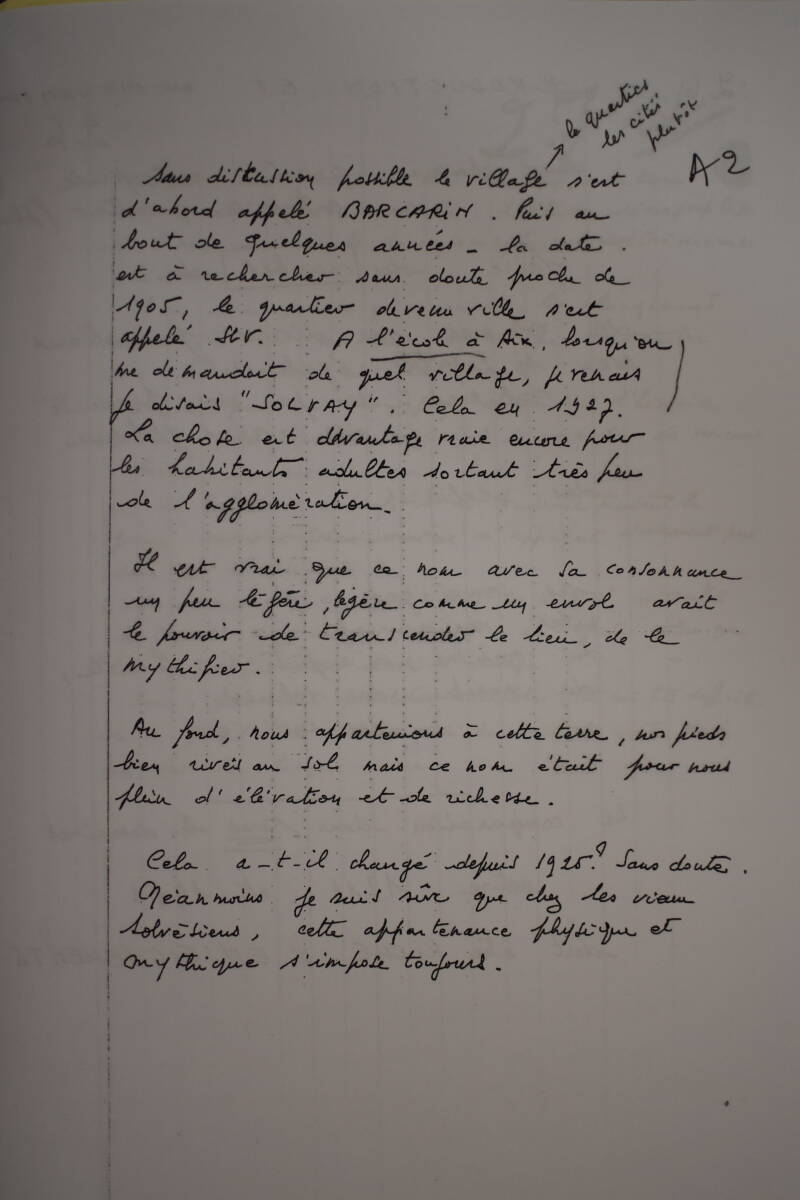 le quartier
les cités
plutôt
A2
Sans discussion possible le village s'est
d'abord appelé BARCARIN. Puis au
bout de quelques années - la date
est à rechercher sans doute proche de
1905, le quartier devenu ville s'est
appelé A l'école à Aix, lorsqu'on
me demandait de quel village, je venais
je disais "SOLVAY". Cela en 1927.
La chose est davantage vraie encore pour
les habitants adultes sortant très peu
de l'agglomération.
Il est vrai que ce nom avec sa consonnance
un peu légère, légère comme un envol avait
le pouvoir de transcender le lieu, de le
mythifier.
Au fond, nous appartenions à cette terre, nos pieds
bien rivés au sol mais ce nom était pour nous
plein d'élévation et de richesse.
Cela a-t-il changé depuis 1925? Sans doute.
Néanmoins je suis sûr que chez les vieux
Solvésiens, cette appartenance physique et
mythique s'impose toujours.